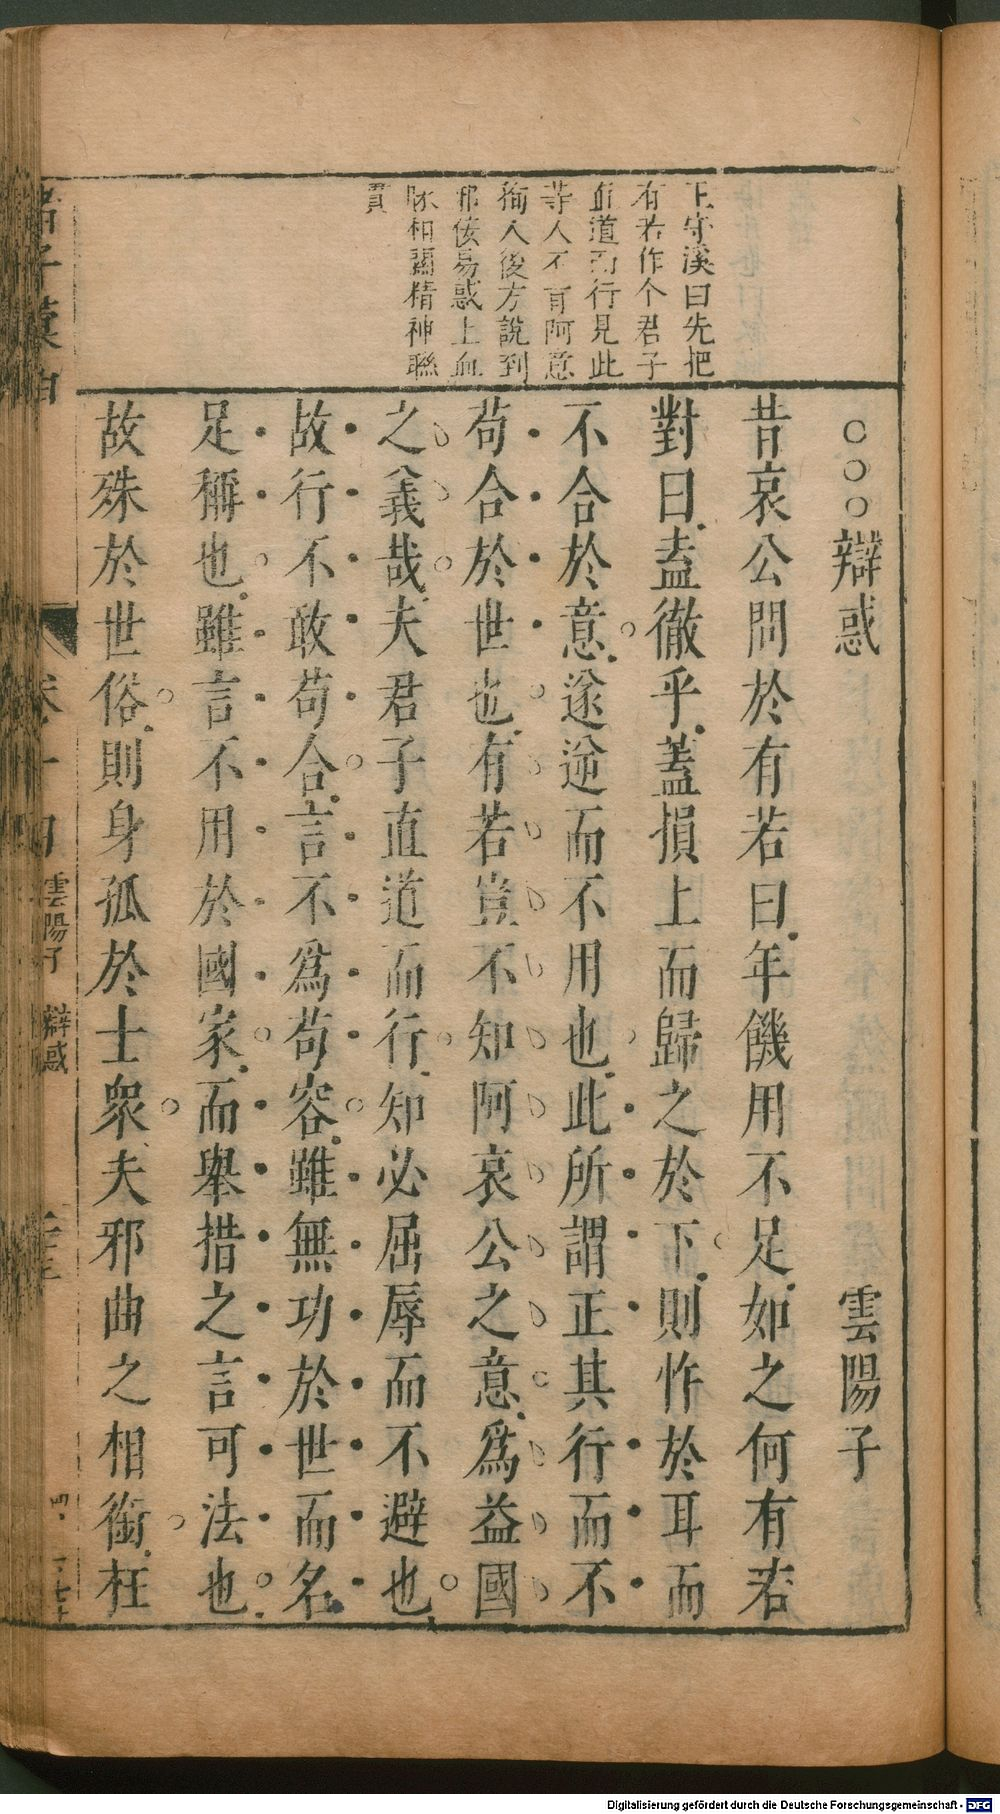 王守溪曰先把
有若作个君子
直道而行見此
等人不肯阿意
徇人後方說到
邪佞易惑上血
脉相關精神聯
貫
○○○辯惑 雲陽子
昔哀公問於有若曰年饑用不足如之何有若
對曰盍徹乎蓋損上而歸之於下則怍於耳而
不合於意遂逆而不用也此所謂正其行而不
苟合於世也有若豈不知阿哀公之意為益國
之義哉夫君子直道而行知必屈辱而不避也
故行不敢苟合言不為苟容雖無功於世而名
足稱也雖言不用於國家而舉措之言可法也
故殊於世俗則身孤於士衆夫邪曲之相銜枉
諸子彙函 卷十四 雲陽子 辯惑
Digitalisierung gefördert durch die Deutsche Forschungsgemeinschaft - DFG